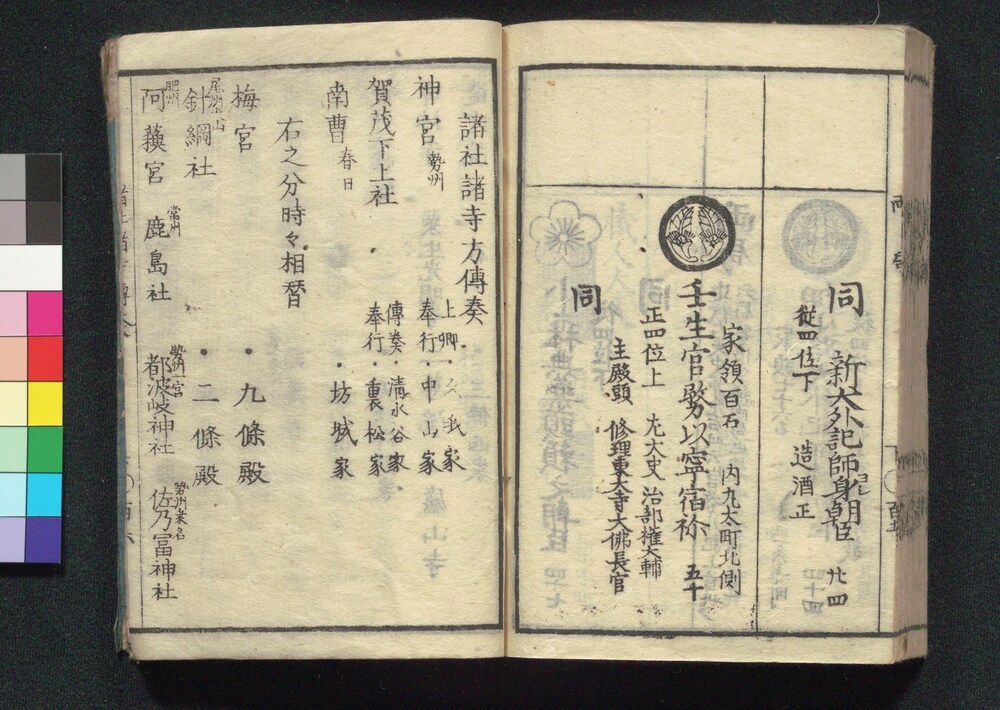 同　新大外記師身朝臣　廾四
從四位下　造酒正
家領百石　内丸太町北側
壬生官務以寧宿祢　五十
正四位上　左大史　治部權大輔
主殿頭　修理東大寺大佛長官
同
諸社諸寺方傳奏
神宮　勢州
上卿・久我家
奉行・中山家
賀茂下上社
傳奏・清水谷家
奉行・裏松家
南曹　春日　・坊城家
右之分時々相替
梅宮　・九條殿
尾州犬山
針綱社　・二條殿
肥州
阿蘓宮
常州
鹿島社
勢州一宮
都波岐神社
勢州桑名
佐乃冨神社